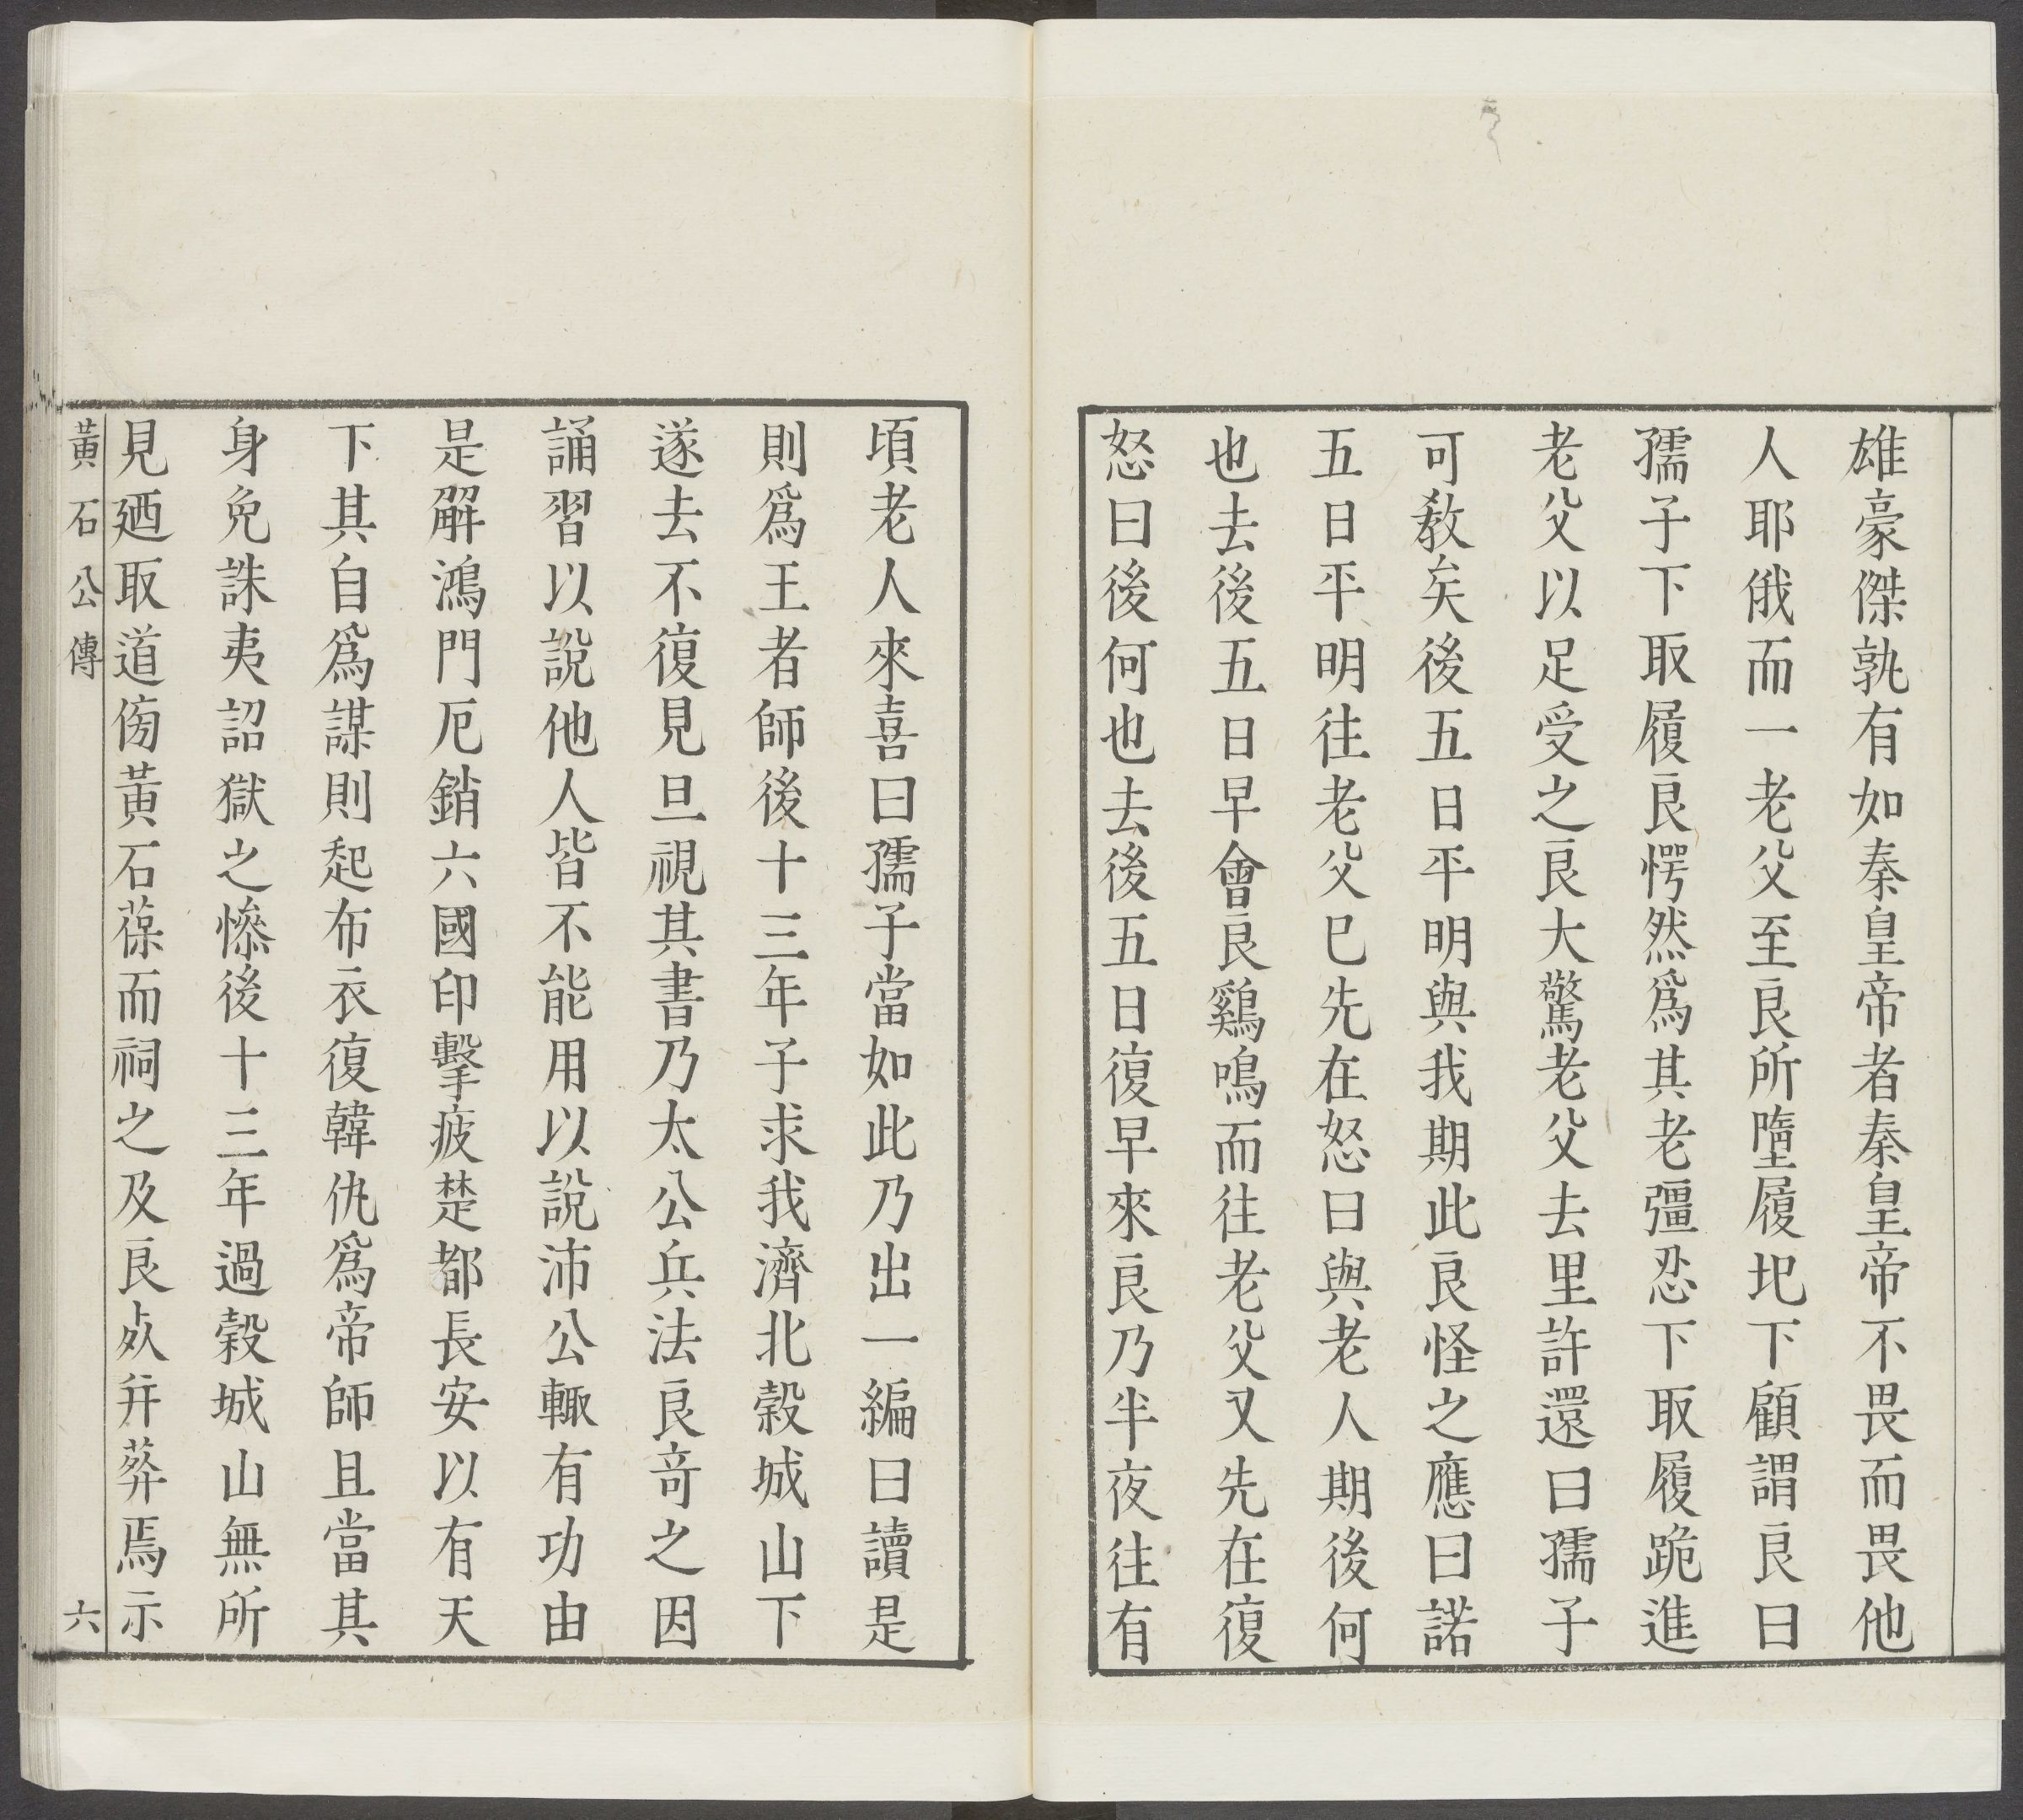 雄豪傑孰有如秦皇帝者秦皇帝不畏而畏他
人耶俄而一老父至良所墮履圯下顧謂良曰
孺子下取履良愕然爲其老彊忍下取履跪進
老父以足受之良大驚老父去里許還曰孺子
可敎矣後五日平明與我期此良怪之應曰諾
五日平明往老父巳先在怒曰與老人期後何
也去後五日早會良鷄鳴而往老父又先在復
怒曰後何也去後五日復早來良乃半夜往有
頃老人來喜曰孺子當如此乃出一編曰讀是
則爲王者師後十三年子求我濟北榖城山下
遂去不復見旦視其書乃太公兵法良竒之因
誦習以說他人皆不能用以說沛公輙有功由
是解鴻門厄銷六國印擊疲楚都長安以有天
下其自爲謀則起布衣復韓仇爲帝師且當其
身免誅夷詔獄之慘後十三年過榖城山無所
見廼取道傍黃石葆而祠之及良歿幷葬焉示
黃石公傳 六